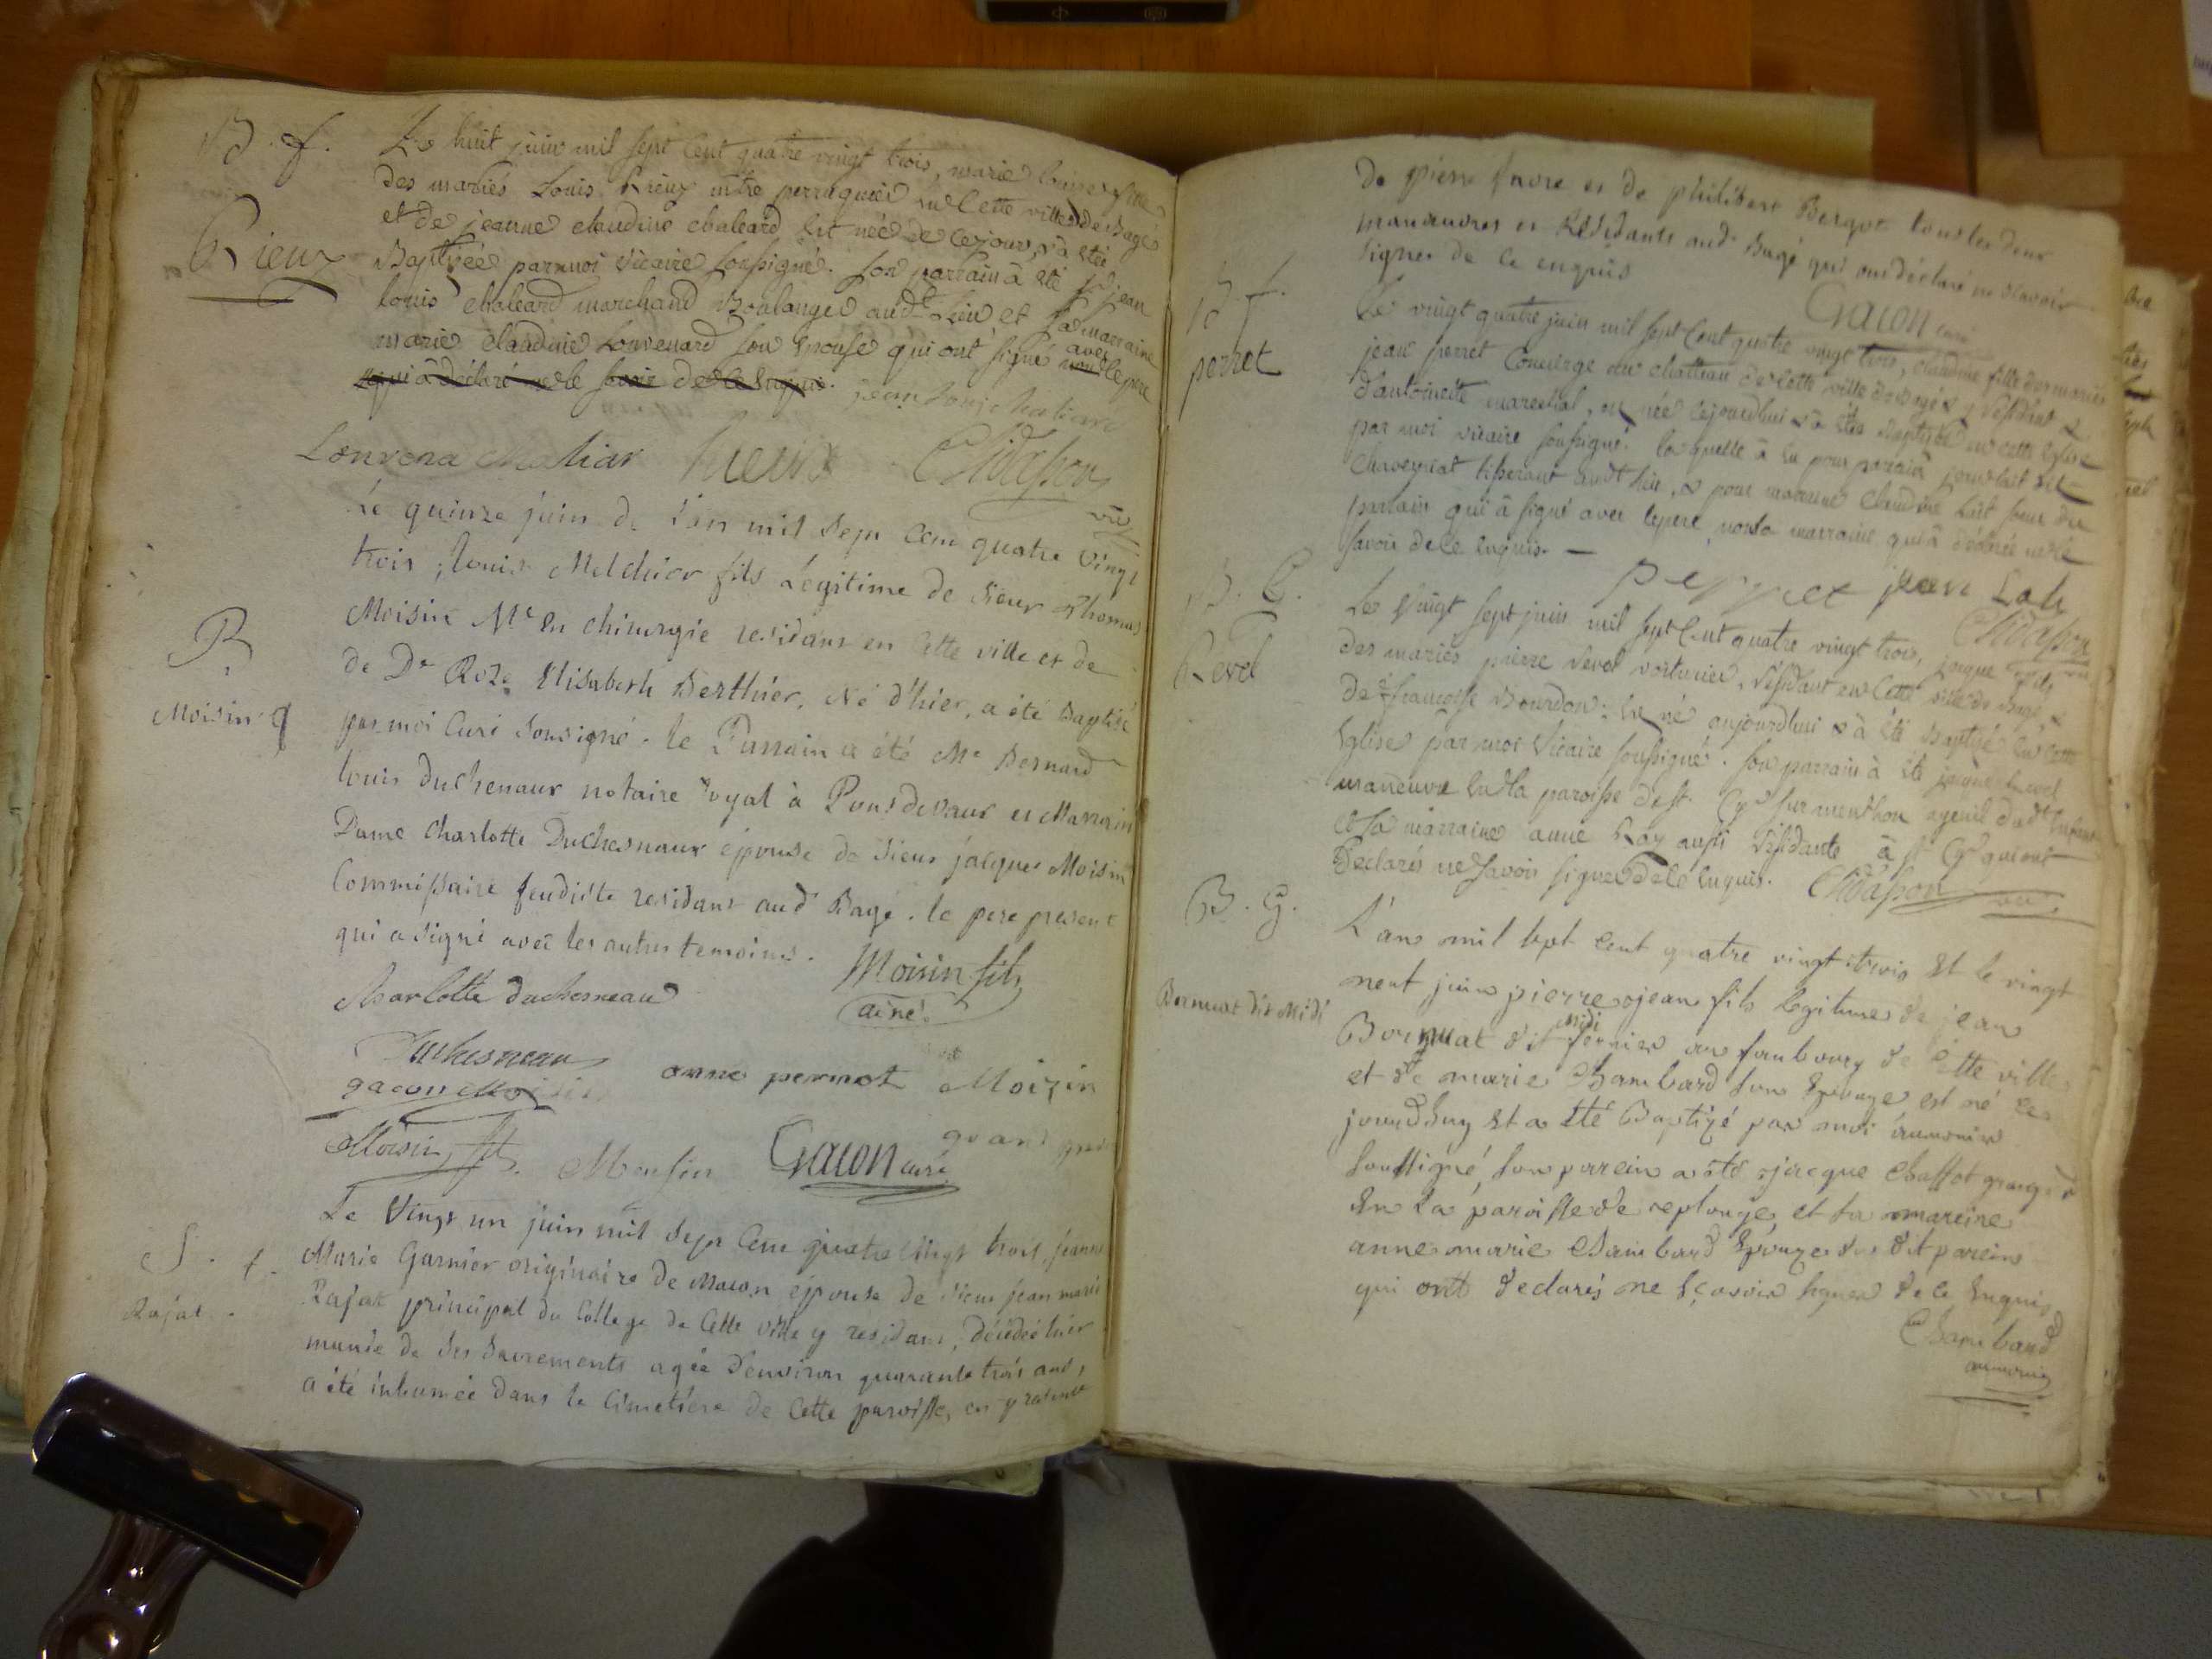 B. f.
Rieux
Le huit juin mil sept Cent quatre vingt trois, marie louise fille
des mariés Louis Rieux mtre perruquier en Cette ville de Bagé
et de jeanne claudine chaleard est née de ce jour, & à été
Baptisée par moi vicaire soussigné. son parrain à été jean
louis chaleard marchand Boulanger audt Lieu et sa marraine
marie claudine Louvenard son Epouse qui ont signé avec le pere
qui à déclaré ne le savoir de ce Enquis. jean Louis chaliar
Lonvena chaliar Rieux Chidasson
vic
B.
Moisin
Le quinze juin de L'an mil Sept Cent quatre Vingt
trois, louis Melchior fils Legitime de Sieur Thomas
Moisin Me En chirurgie residant en Cette ville et de
de De Roze Elisabeth Berthier, Né d'hier, a été Baptisé
par moi Curé Sousigné. le Parrain a été Me Bernard
louis Duchenaux notaire royal à Pontdevaux et Marraine
Dame Charlotte Duchesnaux épouse de Sieur jacques Moisin
Commissaire feudiste residant aud Bagé. le pere present
qui a signé avec les autres temoins. Moisin fils
ainé.
Charlotte duchesneau
Duchesneau
gacon Moisin
anne pernot Moizin
Moisin fils. Gacon curé grand pere
S. f.
Rajat.
Le Vingt un juin mil Sept Cent quatre Vingt trois, jeanne
Marie Garnier originaire de Macon épouse de Sieur jean marie
Rajat principal du College de Cette ville y residant, décédée hier
munie de Ses Sacrements agée d'environ quarante trois ans,
a été inhumée dans le Cimetière de Cette paroisse, en presence
de pierre favre et de philibert Bergot tous les deux
manœuvres et Residants aud Bagé qui ont déclaré ne Scavoir
signer de ce enquis
Gacon curé
B. f.
perret
Le vingt quatre juin mil sept Cent quatre vingt trois, claudine fille des mariés
jean perret Concierge au chatteau de cette ville de Bagé y résidant &
d'antoinette marechal, est née cejourdhui & à été Baptisée en cette Eglise
par moi vicaire soussigné. laquelle à eu pour parrain jean lait
Chaveyriat tisserant audt lieu, & pour marraine claudine lait sœur du
parrain qui à signé avec le pere, non la marraine qui à déclarée ne le
savoir de ce enquis. —
perret jean Lait
Chidasson
vic
B. G.
Revel
Le Vingt sept juin mil sept Cent quatre vingt trois, jacque fils
des mariés pierre revel voiturier, résidant en Cette ville de Bagé, &
de françoise Bourdon; est né aujourdhui & à été Baptisé en cette
Eglise par moi Vicaire soussigné. son parrain à été jacque Revel
maneuvre en la paroisse de St. Cyr sur menthon ayeul dudt Enfant
et sa marraine anne Ray aussi résidante à St Cyr qui ont
Declarés ne savoir signer de ce enquis. Chidasson vic
B. G.
Bornuat dit Midi
L'an mil sept cent quatre vingt trois et le vingt
neuf juin pierre jean fils legitime de jean
Bornuat dit midi fermier au faubourg de Cette ville
et de marie Chambard son Epouze est né ce
jourdhuy et a été Baptizé par moi aumonier
soussigné, son parein a été jacque Chaffot granger
En La paroisse de replonge, et sa mareine
anne marie Chambard Epouze du dit parein
qui ont declarés ne sçavoir signer de ce Enquis
Chambard
aumonier